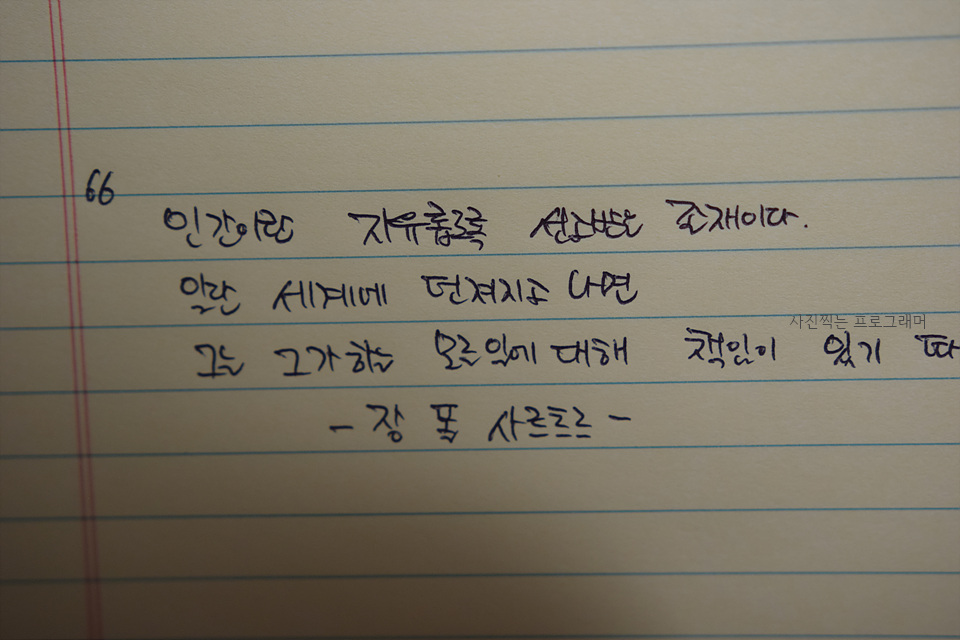 66
인간이란 자유롭도록 선고받은 존재이다.
일단 세계에 던져지고 나면
사진찍는 프로그래머
그는 그가 하는 모든 일에 대해 책임이 있기 따
- 장 폴 사르트르 -